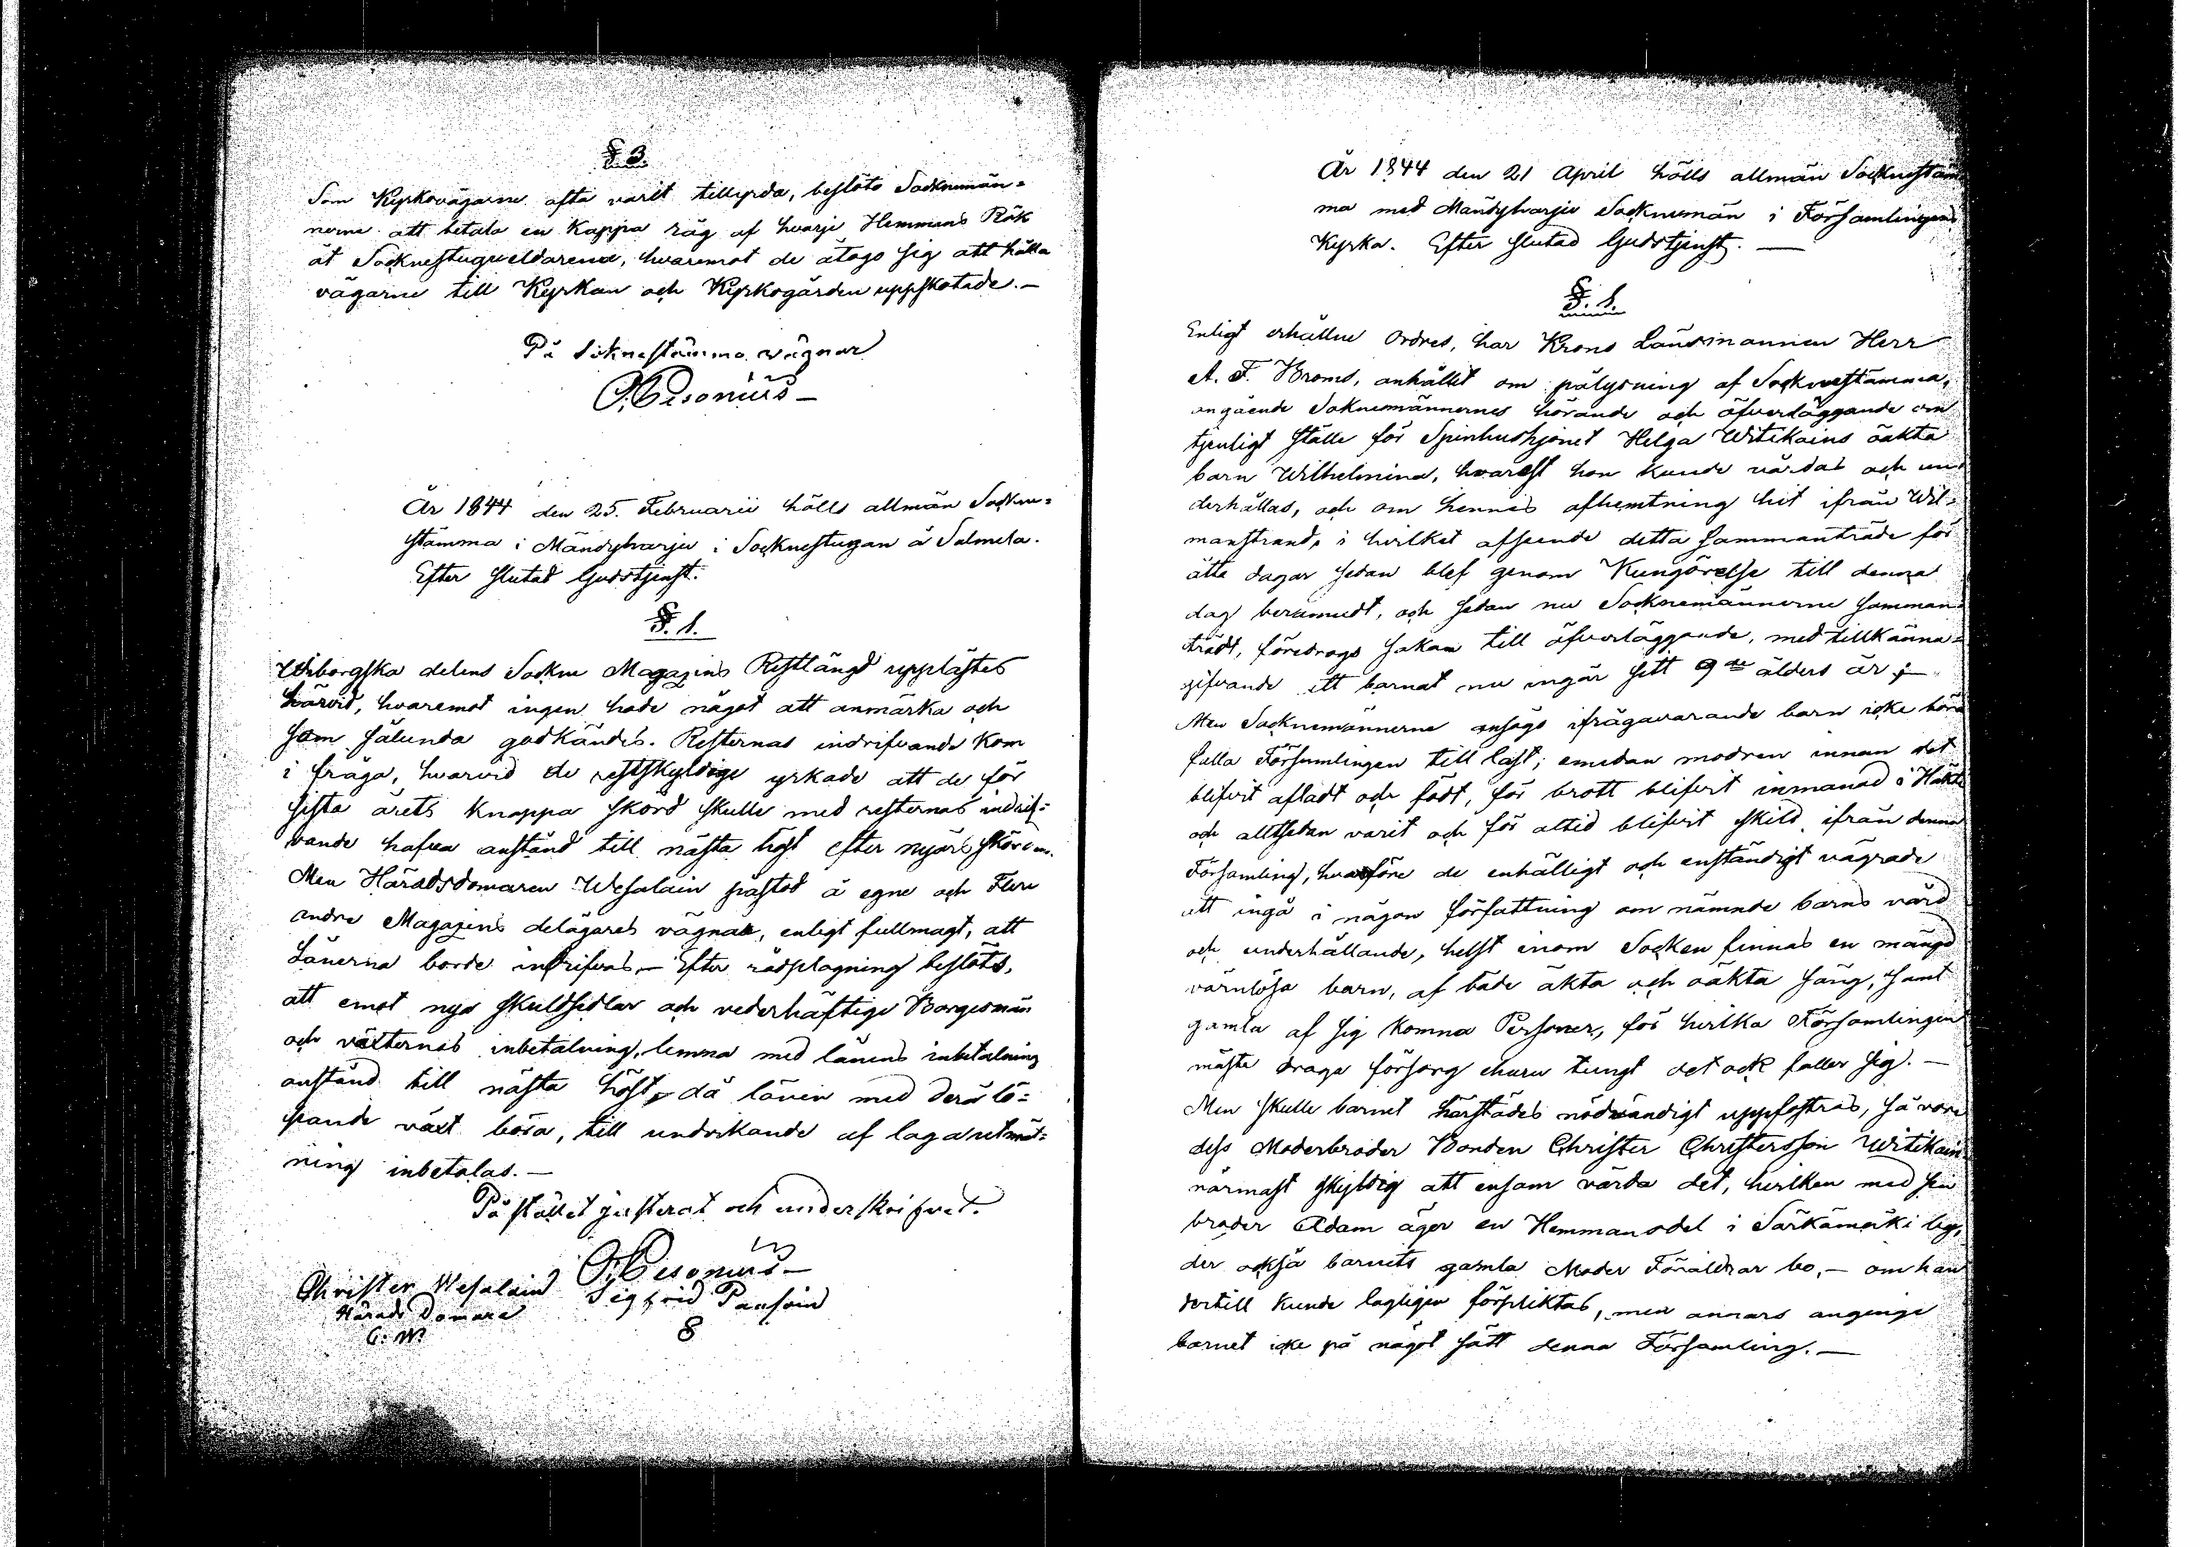 § 3.
Som Kyrkovägarne ofta varit tillyrda, beslöto Socknemän=
nerne att betala en Kappa råg af hvarje Hemmans Rök
åt Socknestugueldarena, hvaremot de åtogo sig att hålla
vägarne till Kyrkan och Kyrkogården uppskotade.—
På Soknestämmo vägnar
År 1844 den 25. Februarii hölls allmän Sockne=
stämma i Mändyharju i Socknestugan å Salmela.
Efter slutad Gudstjenst.
§. 1.
Wiborgska delens Sockne Magazins Restlängd upplästes
härvid, hvaremot ingen hade något att anmärka och
som sålunda godkändes. Resternas indrifvande kom
i fråga, hvarvid de restskyldige yrkade att de för
sista årets knappa skörd skulle med resternas indrif=
vande hafva anstånd till nästa höst efter nyårs skörden.
Men Häradsdomaren Wesalain påstod å egne och Flere
andre Magazins delägares vägnar, enligt fullmagt, att
Lånerna borde indrifvas.— Efter rådplagning beslöts,
att emot nya skuldsedlar och vederhäftige Borgesmän
och växternas inbetalning, lemna med lånens inbetalning
anstånd till nästa höst, då lånen med derå lö=
pande växt böra, till undvikande af laga utmät=
ning inbetalas.—
På stället justerat och underskrifvet.
Christer Wesalain Sigfrid Pansoin
Härads Domare
C. W. 8
År 1844 den 21 April hölls allmän Socknestäm
ma med Mändyharju Socknemän i Församlingens
Kyrka. Efter slutad Gudstjenst.—
§. 1.
Enligt erhållne Ordres, har Krono Länsmannen Herr
A. F. Broms, anhållit om pålysning af Socknestämma,
angående Soknemännernes hörande och öfverläggande om
tjenligt ställe för Spinhushjonet Helga Witikains oäkta
barn Wilhelmina, hvarest hon kunde vårdas och un
derhållas, och om hennes afhemtning hit ifrån Wil=
manstrand, i hvilket afseende detta sammanträde för
åtta dagar sedan blef genom Kungörelse till denna
dag berammadt, och sedan nu Socknemännerne samman
trädt, föredrogs saken till öfverläggande, med tillkänna=
gifvande att barnet nu ingår sitt 9de ålders år;—
Men Socknemännerne ansågo ifrågavarande barn icke böra
falla Församlingen till last; emedan modren innan det
blifvit afladt och födt, för brott blifvit inmanad i Häkte
och alltsedan varit och för altid blifvit skild ifrån denna
Församling, hvarföre de enhälligt och enständigt vägrade
att ingå i någon författning om nämnde barns vård
och underhållande, helst inom Socken finnas en mängd
värnlösa barn, af både äkta och oäkta säng, samt
gamla af sig komna Personer, för hvilka Församlingen
måste draga försorg ehuru tungt det ock faller sig.—
Men skulle barnet härstädes nödvändigt uppfostras, så vore
dess Moderbroder Bonden Christer Christersson Witikain
närmast skyldig att ensam vårda det, hvilken med sin
broder Adam äger en Hemmansdel i Särkämäki by,
der också barnets gamla Moder Föräldrar bo,— om han
dertill kunde lagligen förpliktas, men annars angenge
barnet icke på något sätt denna Församling.—